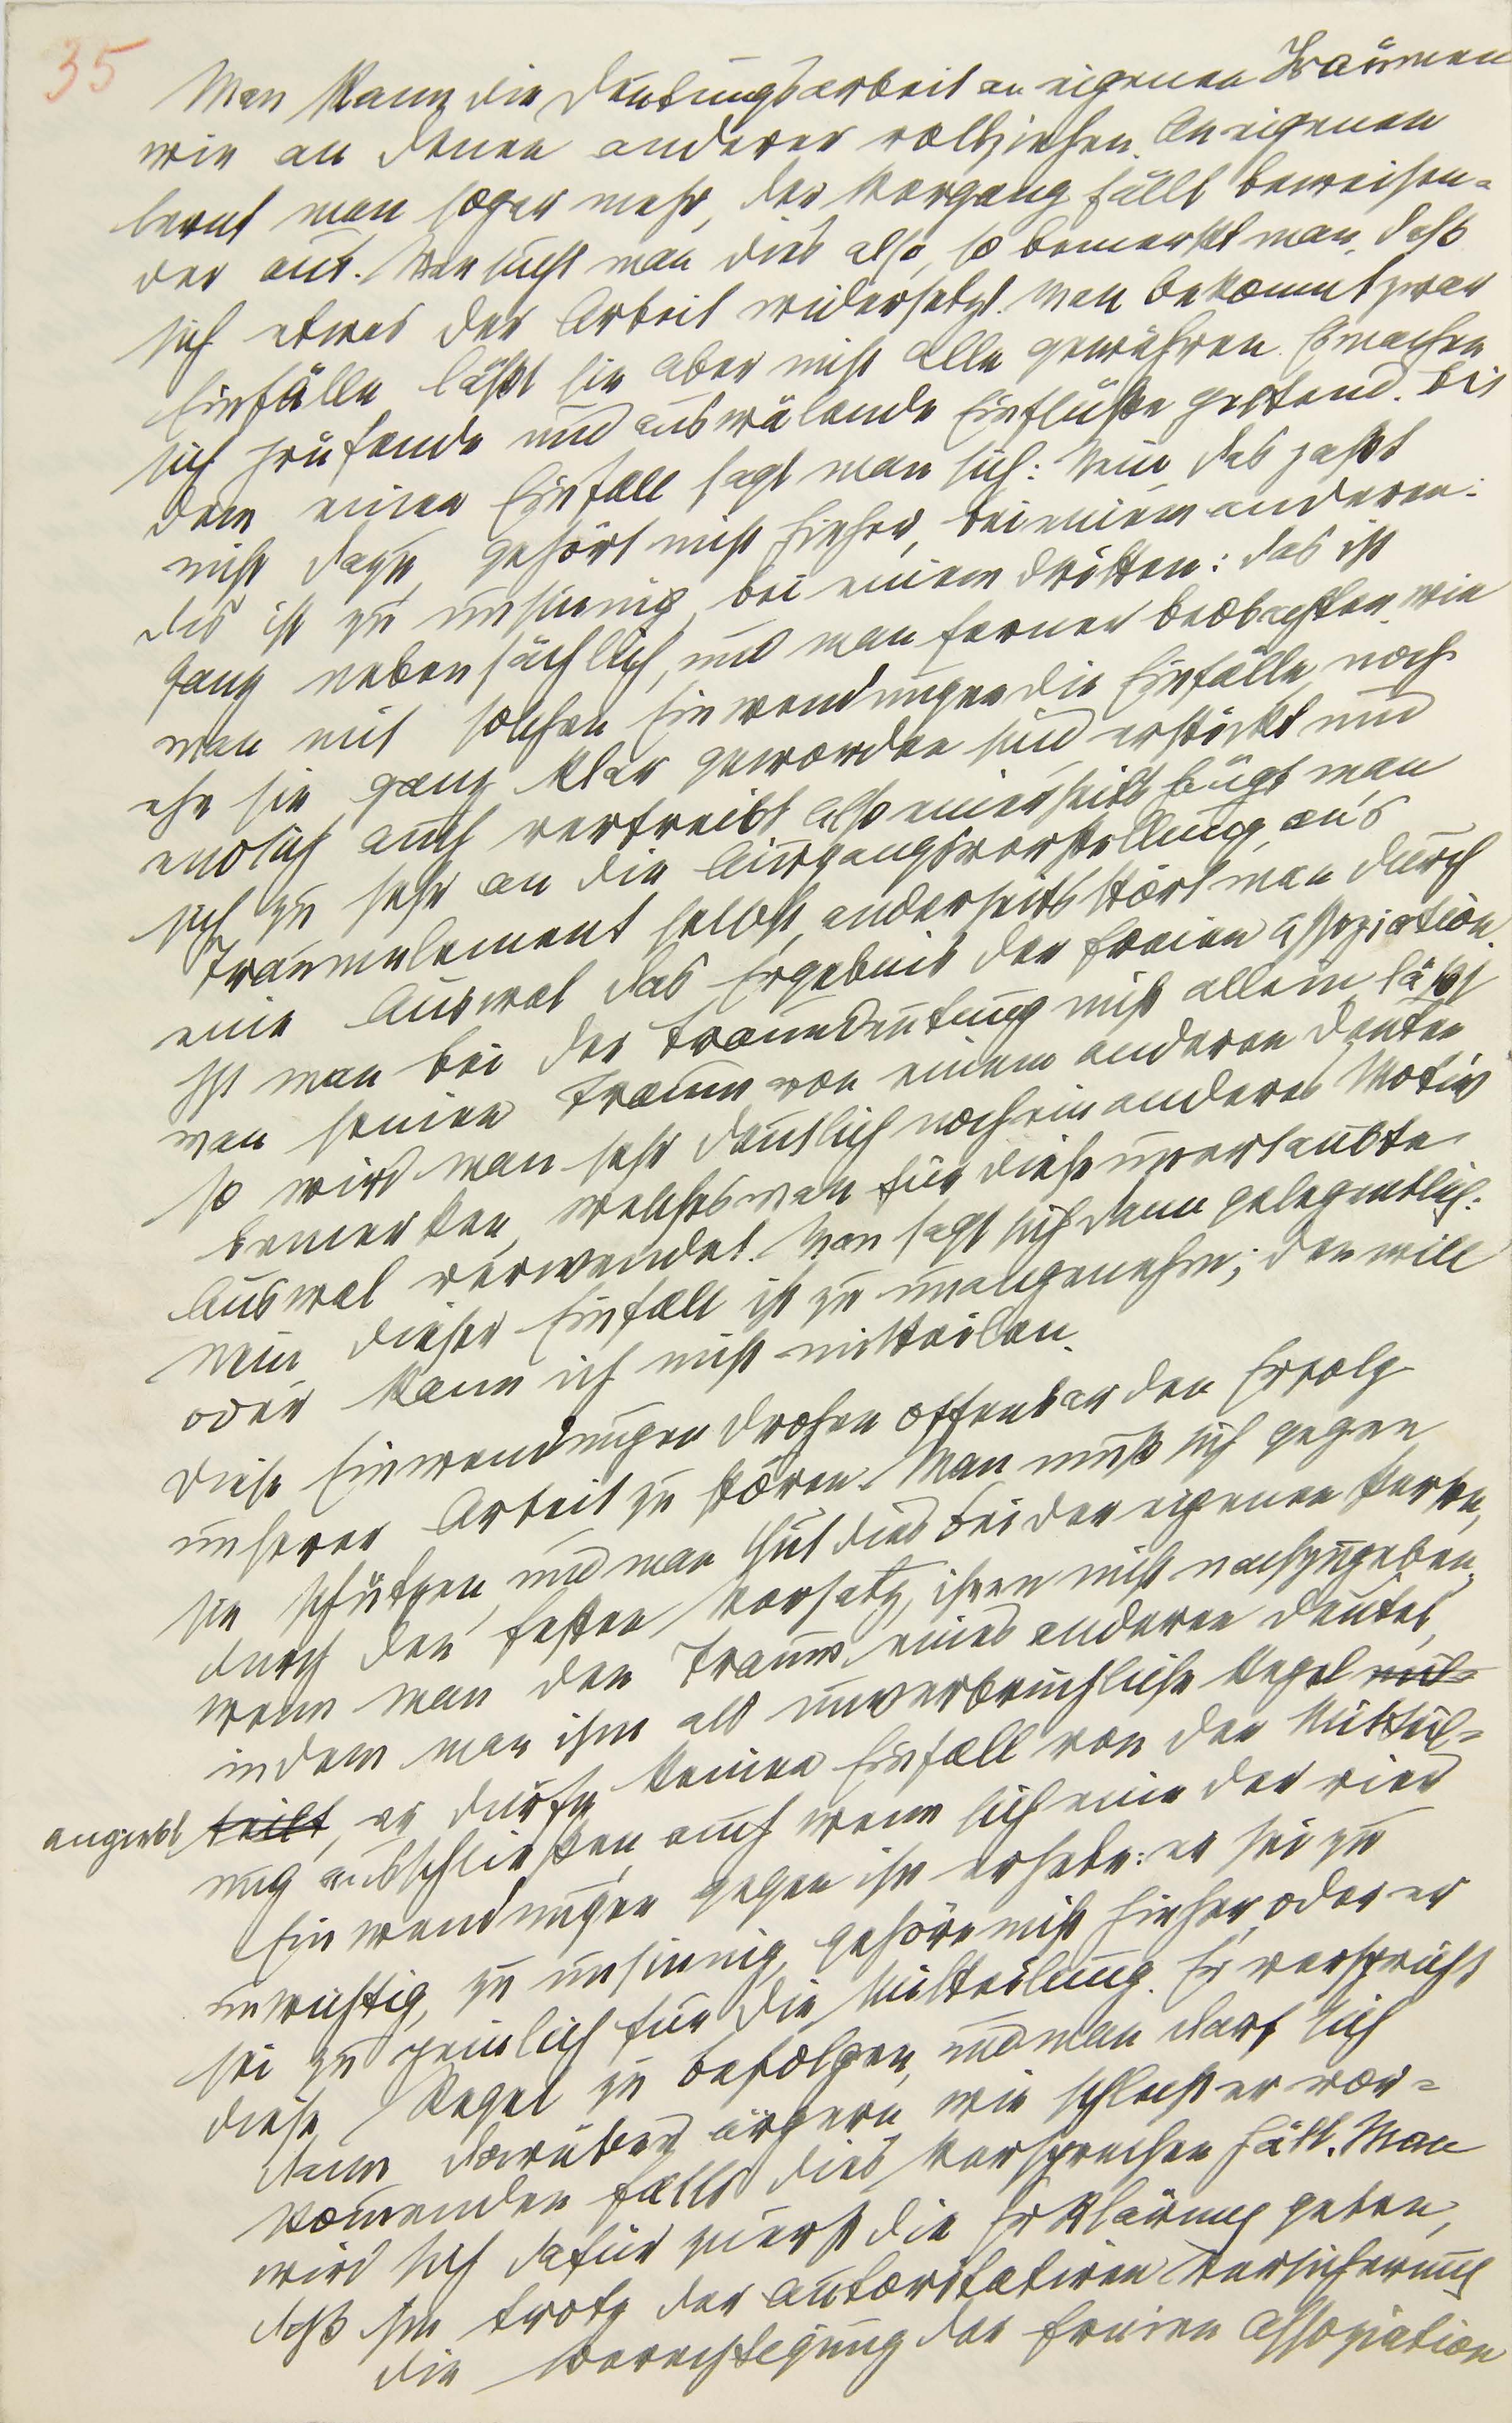 35
Man kann die Deutungsarbeit an eigenen Träumen
wie an denen anderer vollziehen. An eigenen
lernt man sogar mehr, der Vorgang fällt beweisen-
der aus. Versucht man dies also, so bemerkt man, daß
sich etwas der Arbeit widersetzt. Man bekommt zwar
Einfälle läßt sie aber nicht alle gewähren. Es machen
sich prüfende und auswälende Einflüße geltend. Bei
dem einen Einfall sagt man sich: Nein das paßt
nicht dazu, gehört nicht hieher, bei einem anderen:
das ist zu unsinnig, bei einem dritten: das ist
ganz nebensächlich, und man ferner beobachten, wie
man mit solchen Einwendungen die Einfälle, noch
ehe sie ganz klar geworden sind erstickt und
endlich auch vertreibt also einerseits hängt man
sich zu sehr an die Ausgangsvorstellung, ans
Traumelement selbst, anderseits stört man durch
eine Auswal das Ergebnis der freien Assoziation.
Ist man bei der Traumdeutung nicht allein läßt
man seinen Traum von einem anderen deuten
so wird man sehr deutlich noch ein anderes Motiv
bemerken, welches man für diese unerlaubte
Auswal verwendet. Man sagt sich dann gelegentlich:
Nein dieser Einfall ist zu unangenehm; den will
oder kann ich nicht mitteilen.
Diese Einwendungen drohen offenbar den Erfolg
unserer Arbeit zu stören. Man muß sich gegen
sie schützen, und man thut dies bei der eigenen Person,
durch den festen Vorsatz, ihnen nicht nachzugeben,
wenn man den Traum eines anderen deutet,
indem man ihm als unverbrüchliche Regel mit-
angiebt teilt, er dürfe keinen Einfall von der Mitteil-
ung ausschließen, auch wenn sich eine der vier
Einwendungen gegen ihn erhebe: er sei zu
unwichtig, zu unsinnig, gehöre nicht hieher, oder er
sei zu peinlich für die Mitteilung. Er verspricht
diese Regel zu befolgen, und man darf sich
dann darüber ärgern, wie schlecht er vor-
kommenden falls dies Versprechen hält. Man
wird sich dafür zuerst die Erklärung geben,
daß ihm trotz der autoritativen Versicherung
die Berechtigung der freien Assoziation